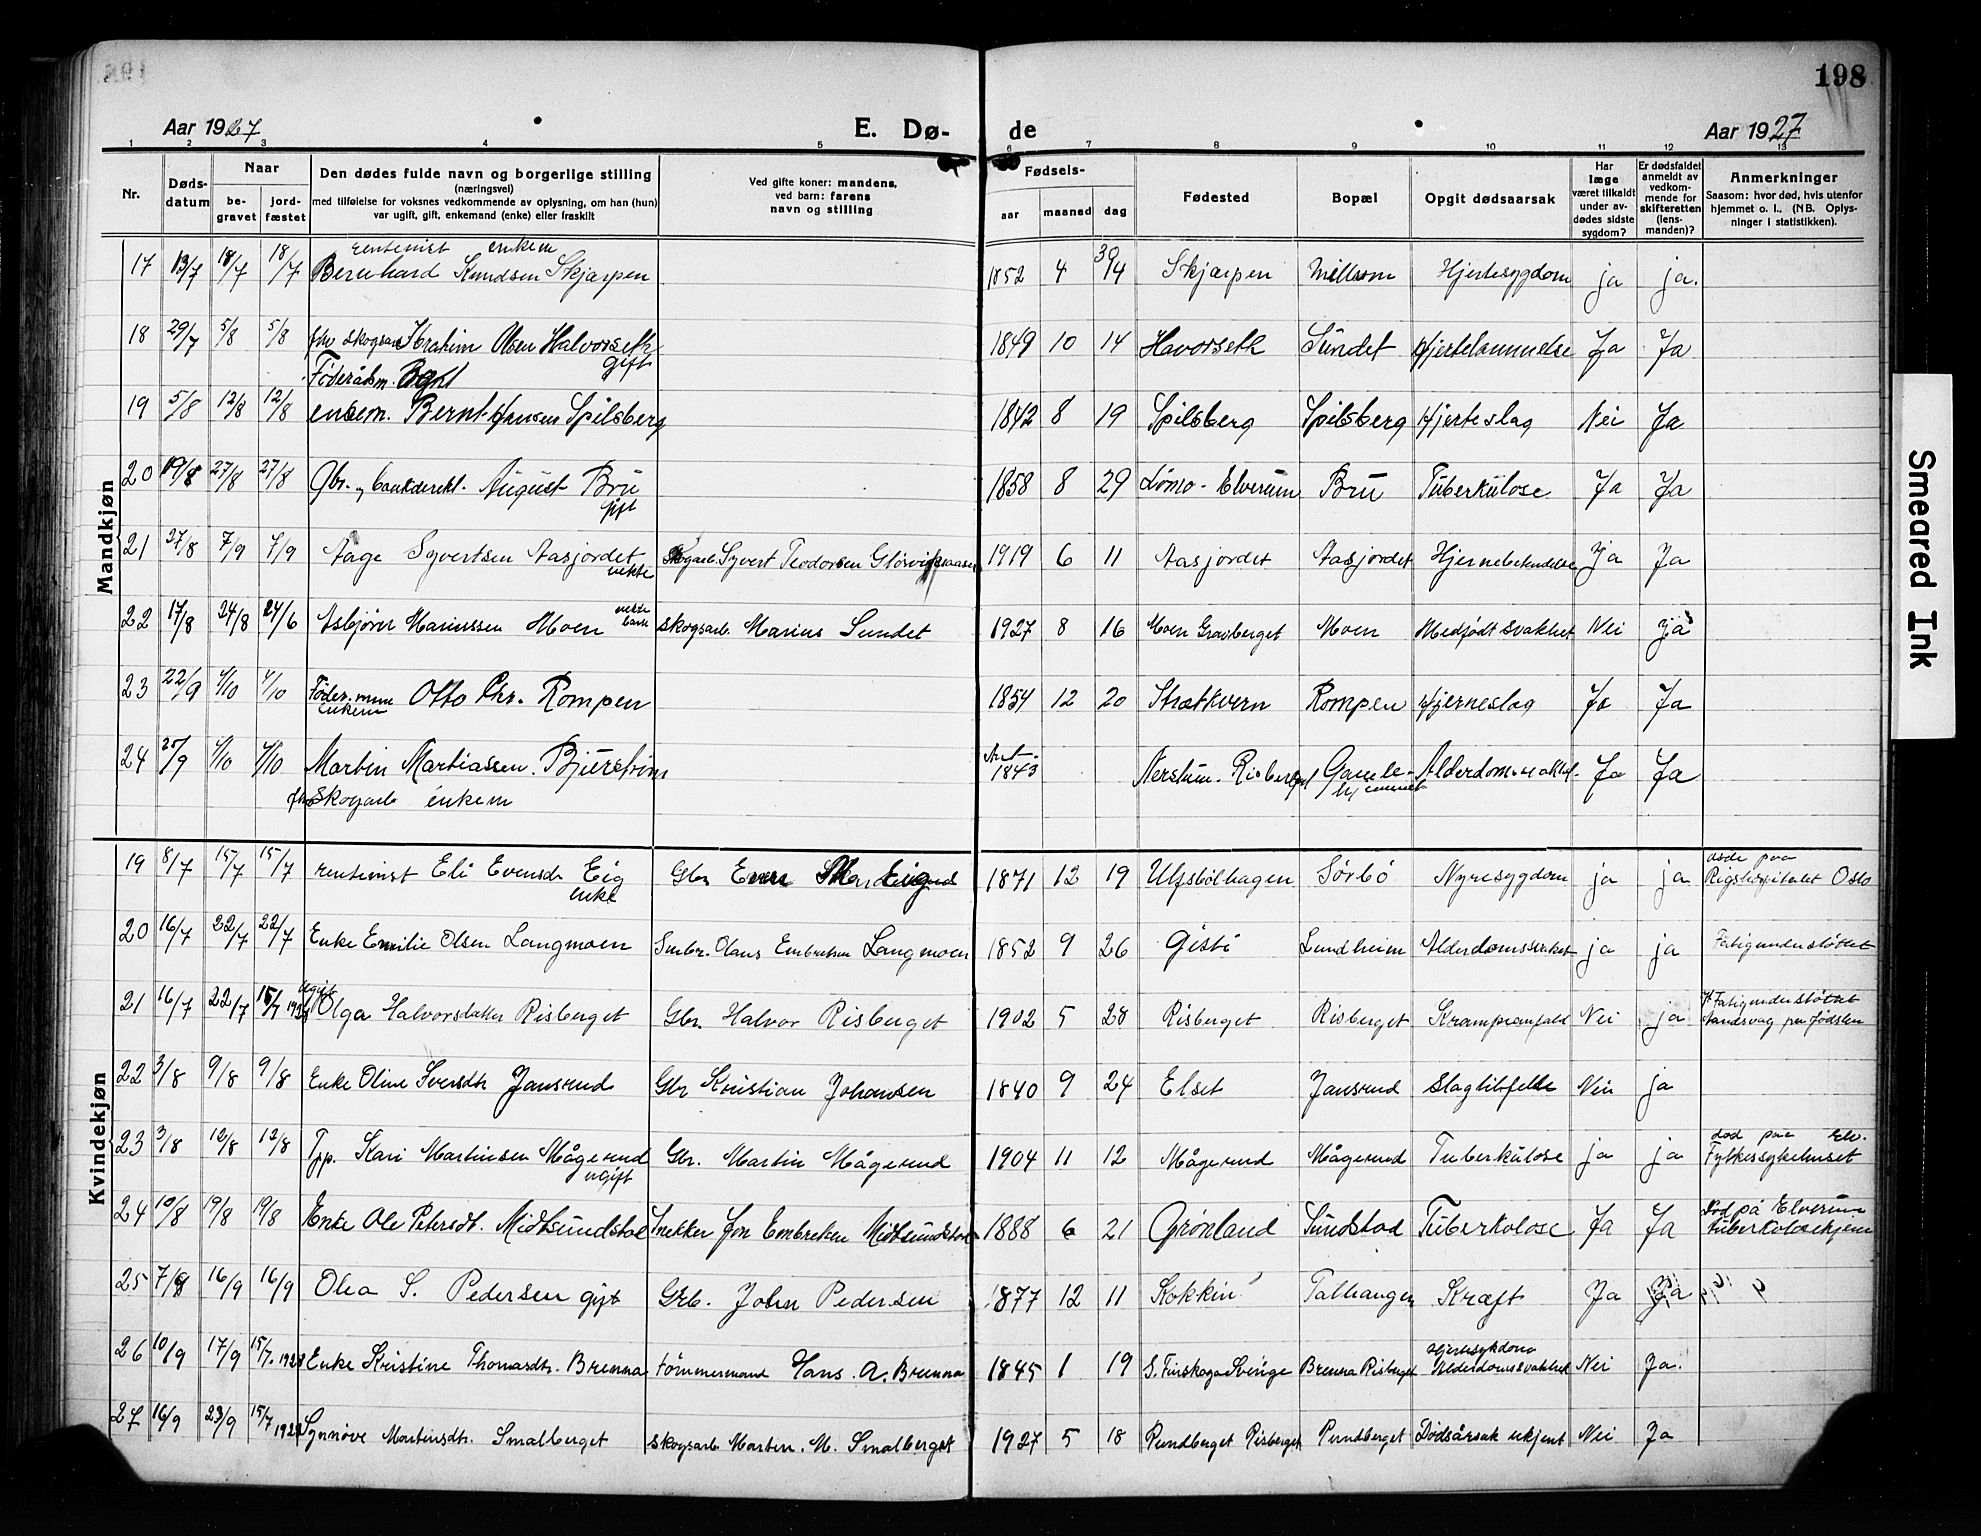 198
Aar 1927 E. Dø- de Aar 1927
1 2 3 4 5 6 7 8 9 10 11 12 13
Nr. Døds-datum Naar be-gravet jord-fæstet Den dødes fulde navn og borgerlige stilling (næringsvei) med tilføielse for voksnes vedkommende av oplysning, om han (hun) var ugift, gift, enkemand (enke) eller fraskilt Ved gifte koner: mandens, ved barn: farens navn og stilling Fødsels- aar maaned dag Fødested Bopæl Opgit dødsaarsak Har læge været tilkaldt under av-dødes sidste sygdom? Er dødsfaldet anmeldt av vedkom-mende for skifteretten (lens-manden)? Anmerkninger Saasom: hvor død, hvis utenfor hjemmet o. l., (NB. Oplys-ninger i statistikken).
Mandkjøn
rentenist enkem 30
17 13/7 18/7 18/7 Bernhard Knudsen Skjærpen 1852 4 14 Skjærpen Mellem Hjertesygdom ja ja.
18 29/7 5/8 5/8 fhv skogsarb Ibrahim Olsen Halvorseth gift 1849 10 14 Havorseth Sundet Hjertelammelse Ja Ja
Føderådsm.
19 5/8 12/8 12/8 enkem. Bernt Hansen Spilsberg 1842 8 19 Spilsberg Spilsberg Hjerteslag Nei Ja
20 19/8 27/8 27/8 Gbr. og bankderekt. August Bru gift 1858 8 29 Lømo - Elverum Bru Tuberkulose Ja Ja
21 27/8 7/9 7/9 Aage Syvertsen Aasjordet ekte Skogarb. Syvert Teodorsen 1919 6 11 Aasjordet Aasjordet Hjernebetendelse Ja Ja
22 17/8 24/8 24/6 Asbjørn Mariussen Moen ekte barn skogsarb. Marius Sundet 1927 8 16 Moen Gravberget Moen Medfødt svakhet Nei ja
23 22/9 4/10 4/10 Føder.mann enkem Otto Chr. Rompen 1854 12 20 Strætkvern Rompen Hjerneslag Ja Ja
24 25/9 4/10 4/10 Martin Martiassen Bjurstrøm Ant 1843 Nerstum. Risberget Gamle-hjemmet Alderdomsvakhet. Ja Ja
fhv Skogarb enkem
Kvindekjøn
19 8/7 15/7 15/7 rentenist Eli Evensdr Eig enke Gbr Even Eig 1871 12 19 Ulvsbölhagen Sørbö Nyresygdom ja ja døde paa Rigshospitalet Oslo
20 16/7 22/7 22/7 Enke Emilie Olsen Langmoen Smbr. Olaus Embretsen Langmoen 1852 9 26 Gisti Lundheim Alderdomssvakhet ja ja Fatigunderstöttet
21 16/7 22/7 15/7 1928 ugift Olga Halvorsdatter Risberget Gbr. Halvor Risberget 1902 5 28 Risberget Risberget Krampeanfald Nei ja Fatigunderstöttet Aandsvag fra fødslen
22 3/8 9/8 9/8 Enke Oline Iversdtr Jansrud Gbr Kristian Johansen 1840 9 24 Elset Jansrud Slagtilfelle Nei ja
23 3/8 12/8 12/8 Tpp. Kari Martinsen Mågerud ugift Gbr. Martin Mågerud 1904 11 12 Mågerud Mågerud Tuberkulose ja ja død paa Elv. Fylkessykehuset
24 10/8 19/8 19/8 Enke Ole Petersdt. Midtsundstad Snekker Jon Embretsen Midtsundstad 1888 6 21 Grønland Sundstad Tuberkolose Ja Ja Død på Elverum tuberkolosehjem
25 7/9 16/9 16/9 Olea S. Pedersen gift Grb. John Pedersen 1877 12 11 Kokkin Talhangen Kræft Ja Ja
26 10/9 17/9 15/7. 1928 Enke Kristine Thomasdtr. Brenna tømmermand Hans. A. Brenna 1845 1 19 S. Finskoga Sverige Brenna Risberget Hjertesykdom Alderdomssvakhet Nei Ja.
27 16/9 23/9 15/7 1928 Synnøve Martinsdtr. Smalberget skogsarb Martin. M. Smalberget 1927 5 18 Pundberget Risberget Pundberget Dødsårsak ukjent Nei Ja
Smeared Ink